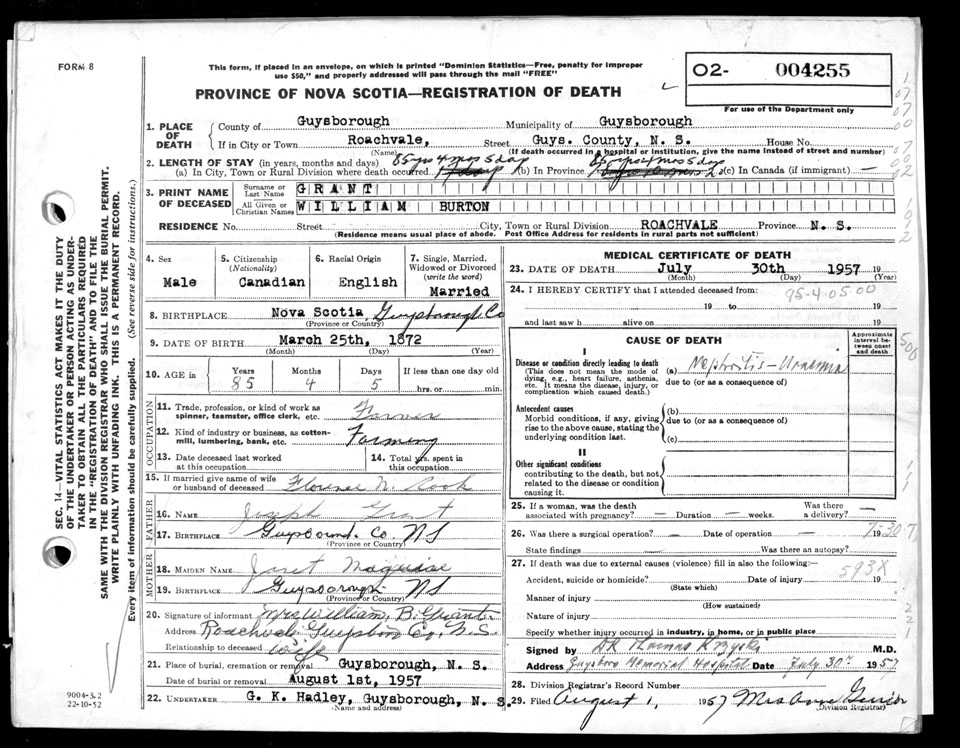 FORM 8
This form, if placed in an envelope, on which is printed "Dominion Statistics—Free, penalty for improper
use $50," and properly addressed will pass through the mail "FREE"
PROVINCE OF NOVA SCOTIA—REGISTRATION OF DEATH
O2- 004255
For use of the Department only
1. PLACE OF DEATH
County of Guysborough Municipality of Guysborough
If in City or Town Roachvale, Street Guys. County, N. S. House No.
(Name) (If death occurred in a hospital or institution, give the name instead of street and number)
2. LENGTH OF STAY (in years, months and days) 85 yrs 4 mos 5 days
(a) In City, Town or Rural Division where death occurred (b) In Province (c) In Canada (if immigrant) —
3. PRINT NAME OF DECEASED
Surname or Last Name GRANT
All Given or Christian Names WILLIAM BURTON
RESIDENCE No. Street City, Town or Rural Division ROACHVALE Province N. S.
(Residence means usual place of abode. Post Office Address for residents in rural parts not sufficient)
4. Sex
Male
5. Citizenship (Nationality)
Canadian
6. Racial Origin
English
7. Single, Married, Widowed or Divorced (write the word)
Married
8. BIRTHPLACE Nova Scotia, Guysborough Co
(Province or Country)
9. DATE OF BIRTH March 25th, 1872
(Month) (Day) (Year)
10. AGE in Years Months Days If less than one day old
85 4 5 hrs. or min.
OCCUPATION
11. Trade, profession, or kind of work as spinner, teamster, office clerk, etc. Farmer
12. Kind of industry or business, as cotton-mill, lumbering, bank, etc. Farming
13. Date deceased last worked at this occupation
14. Total yrs. spent in this occupation
15. If married give name of wife or husband of deceased Florence N. Cook
FATHER
16. NAME Joseph Grant
17. BIRTHPLACE Co. NS
(Province or Country)
MOTHER
18. MAIDEN NAME Janet
19. BIRTHPLACE Guysborough NS
(Province or Country)
20. Signature of informant Mrs William B. Grant
Address Roachvale Guysboro Co, N.S.
Relationship to deceased wife
21. Place of burial, cremation or removal Guysborough, N. S.
Date of burial or removal August 1st, 1957
22. UNDERTAKER G. K. Hadley, Guysborough, N. S.
(Name and address)
9004-3.2
22-10-52
SEC. 14—VITAL STATISTICS ACT MAKES IT THE DUTY
OF THE UNDERTAKER OR PERSON ACTING AS UNDER-
TAKER TO OBTAIN ALL THE PARTICULARS REQUIRED
IN THE "REGISTRATION OF DEATH" AND TO FILE THE
SAME WITH THE DIVISION REGISTRAR WHO SHALL ISSUE THE BURIAL PERMIT.
WRITE PLAINLY WITH UNFADING INK. THIS IS A PERMANENT RECORD.
Every item of information should be carefully supplied. (See reverse side for instructions.)
MEDICAL CERTIFICATE OF DEATH
23. DATE OF DEATH July 30th 1957 19
(Month) (Day) (Year)
24. I HEREBY CERTIFY that I attended deceased from:
95-4-05 00
19 to 19
and last saw h alive on 19
CAUSE OF DEATH
Approximate interval between onset and death
I
Disease or condition directly leading to death
(This does not mean the mode of dying, e.g., heart failure, asthenia, etc. It means the disease, injury, or complication which caused death.)
(a) Nephritis - Uraemia
due to (or as a consequence of)
Antecedent causes
Morbid conditions, if any, giving rise to the above cause, stating the underlying condition last.
(b)
due to (or as a consequence of)
(c)
II
Other significant conditions
contributing to the death, but not related to the disease or condition causing it.
25. If a woman, was the death associated with pregnancy? — Duration — weeks. Was there a delivery? —
26. Was there a surgical operation? — Date of operation — 19
State findings — Was there an autopsy?
27. If death was due to external causes (violence) fill in also the following:
593X
Accident, suicide or homicide? Date of injury 19
(State which)
Manner of injury
(How sustained)
Nature of injury
Specify whether injury occurred in industry, in home, or in public place
Signed by DR Thomas Krzyski M.D.
Address Guysboro Memorial Hospital Date July 30th 1957
28. Division Registrar's Record Number
29. Filed August 1, 1957 Mrs
(Division Registrar)